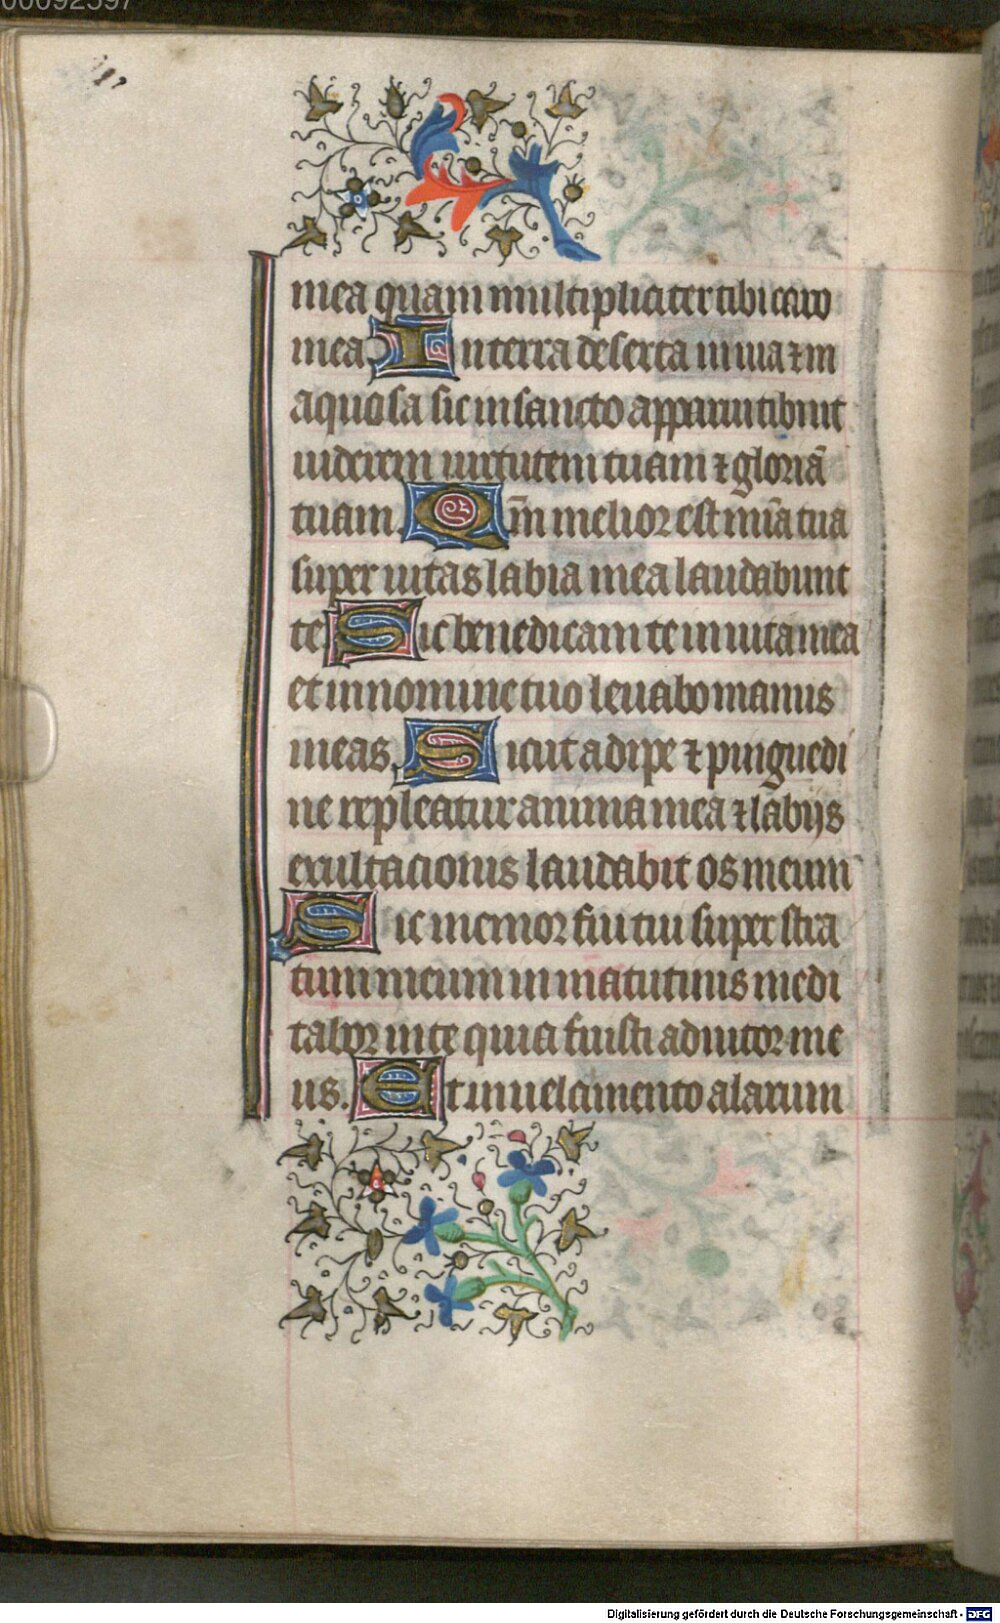 00092597
mea quam multipliciter tibi caro
mea In terra deserta inuia ⁊ in
aquosa sic in sancto apparui tibi ut
uiderem uirtutem tuam ⁊ gloriā
tuam. Qm̄ melior est mīa tua
super uitas labia mea laudabunt
te Sic benedicam te in uita mea
et in nomine tuo leuabo manus
meas, Sicut adipe ⁊ pinguedi
ne repleatur anima mea ⁊ labijs
exultacionis laudabit os meum
Sic memor fui tui super stra
tum meum in matutinis medi
tabor in te quia fuisti adiutor me
us. Et in uelamento alarum
Digitalisierung gefördert durch die Deutsche Forschungsgemeinschaft - DFG